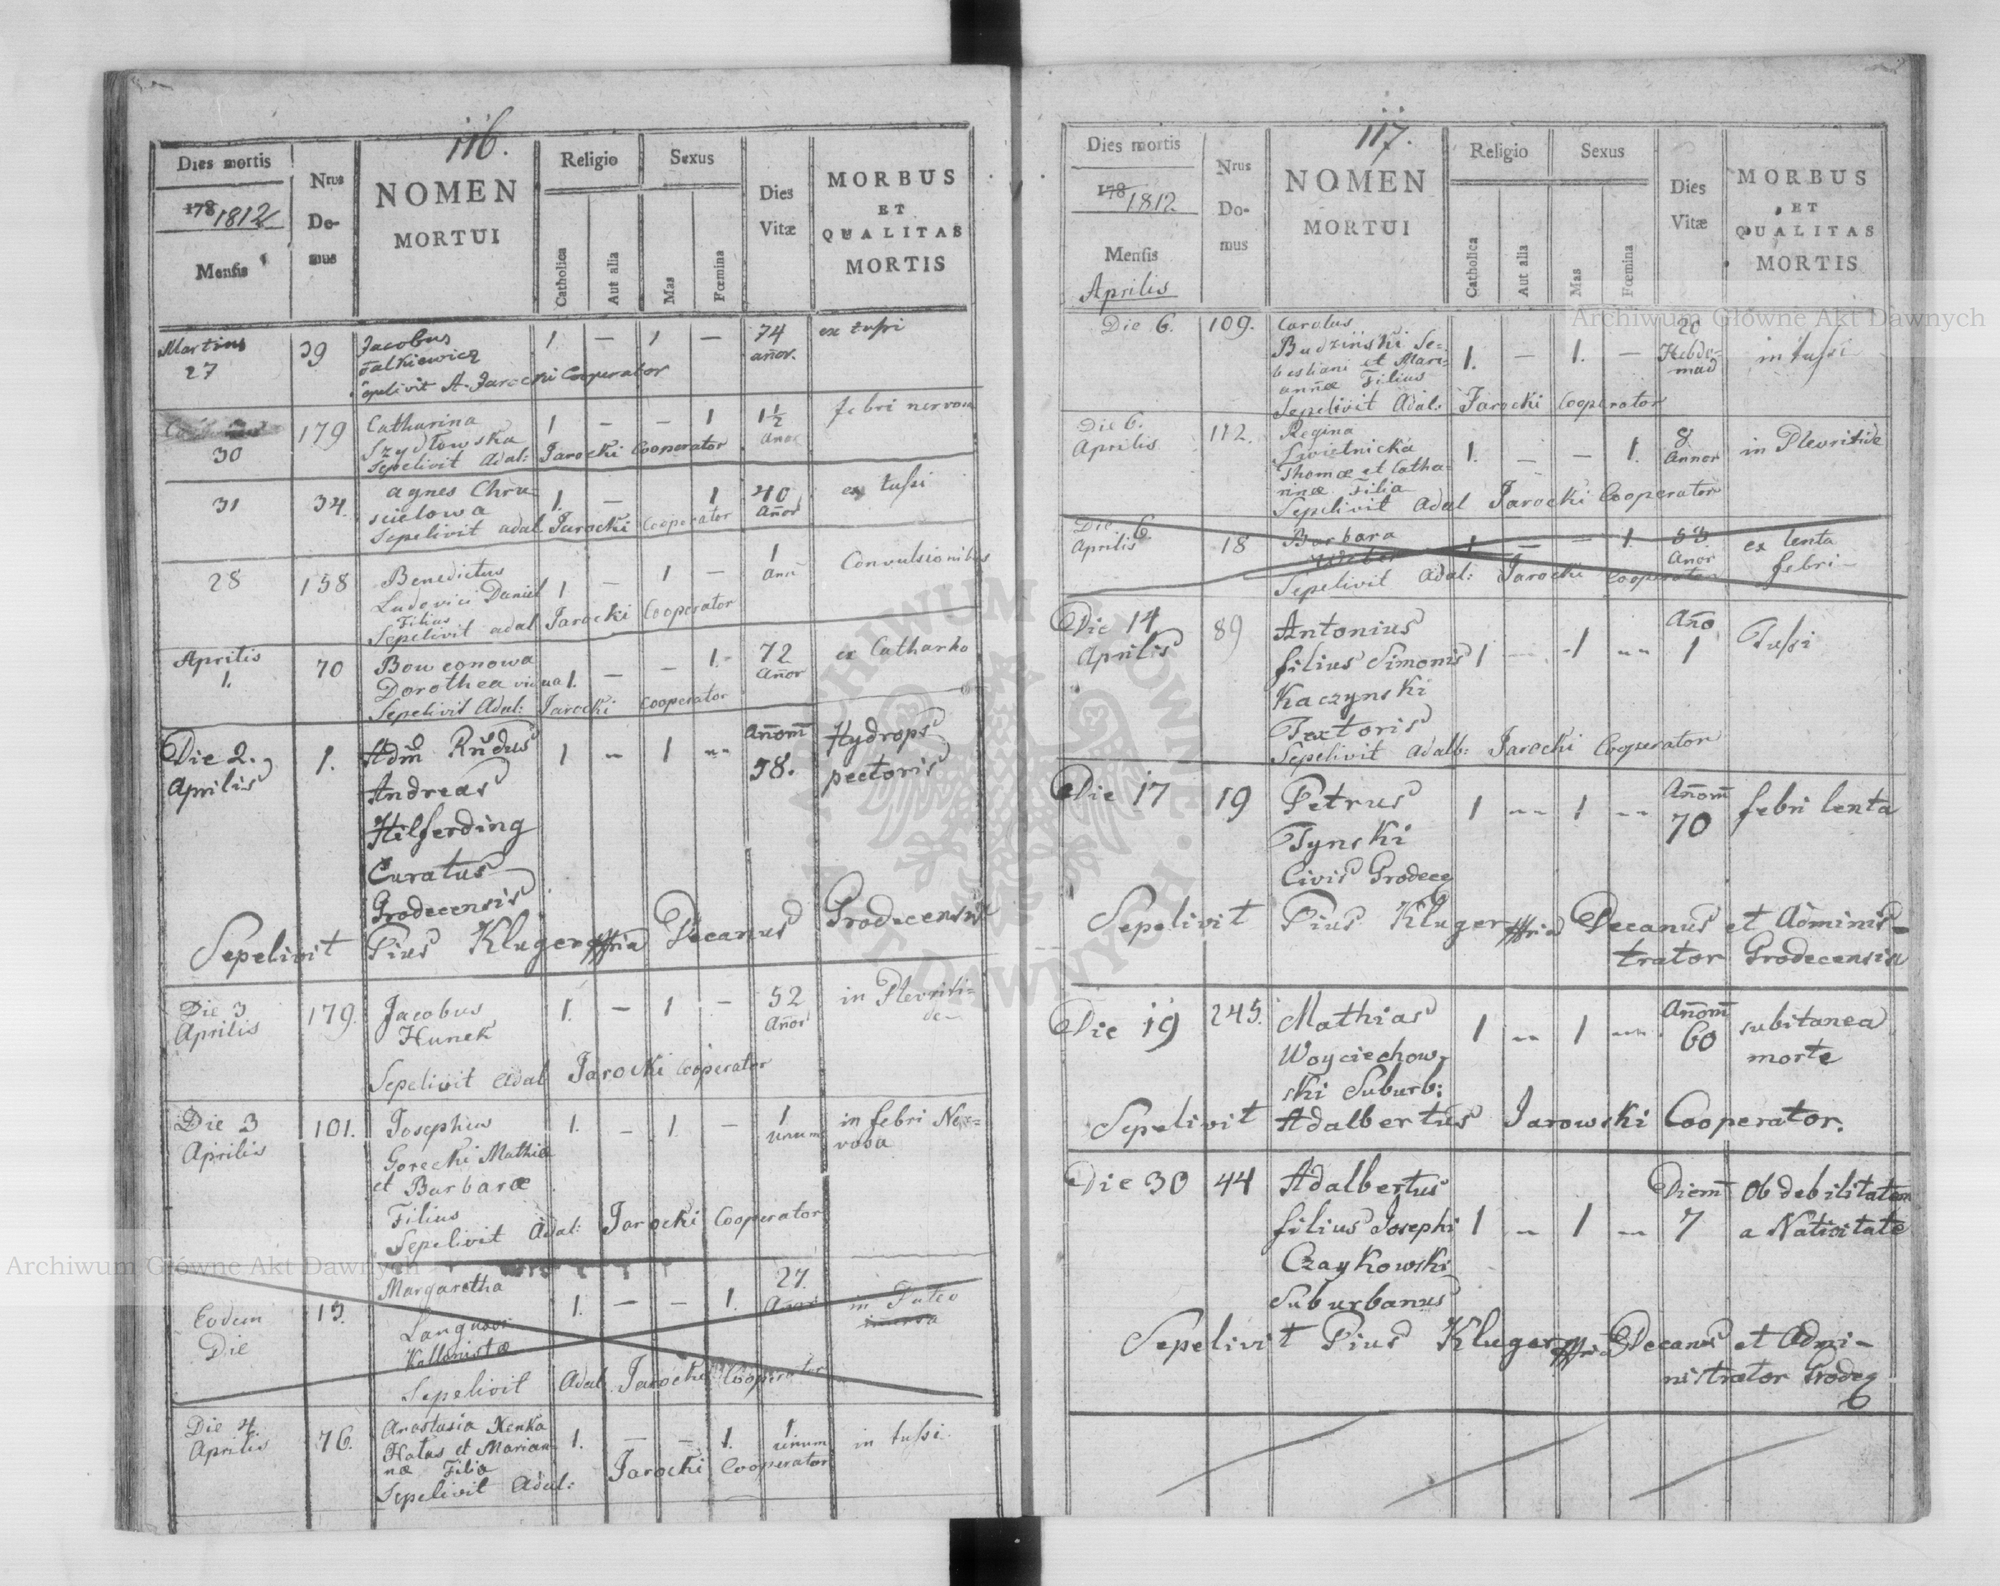 116.
Dies mortis
178 1812
Mensis
Nrus
Do-
mus
NOMEN
MORTUI
Religio
Catholica
Aut alia
Sexus
Mas
Fœmina
Dies
Vitæ
MORBUS
ET
QUALITAS
MORTIS
Martius
27
39
Jacobus
Falkiewicz
1 — 1 —
74
añor.
ex tussi
Sepelivit A. Jarocki Cooperator
30
179
Catharina
Szydłowska
1 — — 1
1½
febri nervosa
Sepelivit Adal: Jarocki Cooperator
31
34.
Agnes Chru-
scielowa
1. — 1
40
Añor
ex tussi
Sepelivit adal Jarocki Cooperator
28
158
Benedictus
Ludovici Daniel
Filius
1 — 1 —
1
Convulsionibus
Sepelivit adal Jarocki Cooperator
Aprilis
1.
70
Boweonowa
Dorothea vidua
1. — — 1.-
72
Añor
ex Catharho
Sepelivit Adal: Jarocki Cooperator
Die 2.
Aprilis
1.
Adm Rñdus
Andreas
Hilferding
Curatus
Grodecensis
1 - 1 --
Añom
58.
Hydrops
pectoris
Sepelivit Pius Kluger Decanus Grodecensis
Die 3
Aprilis
179.
Jacobus
Hunek
1. — 1 —
52
Añor
in Plevriti-
de —
Sepelivit Adal Jarocki Cooperator
Die 3
Aprilis
101.
Josephus
Gorecki Mathiæ
et Barbaræ
Filius
1. — 1. —
1
unum
in febri Ner-
vosa
Sepelivit Adal: Jarocki Cooperator
Eodem
Die
15.
Margaretha
Kollonistæ
1. — — 1.
27.
Añor
in Puteo
Sepelivit Adal Jarocki Cooperator
Die 4.
Aprilis
76.
Anastasia Kenka
Hatus et Marian-
næ Filia
1. — — 1.
1
unum
in tussi
Sepelivit Adal: Jarocki Cooperator
117.
Dies mortis
178 1812
Mensis
Aprilis
Nrus
Do-
mus
NOMEN
MORTUI
Religio
Catholica
Aut alia
Sexus
Mas
Fœmina
Dies
Vitæ
MORBUS
ET
QUALITAS
MORTIS
Die 6.
109.
Carolus
Budzinski Se-
bestiani et Mari-
annæ Filius
1. — 1. —
20
Hebdo-
mad
in tussi
Sepelivit Adal: Jarocki Cooperator
Die 6.
Aprilis
112.
Regina
Swietnicka
Thomæ et Catha-
rinæ Filia
1. — — 1.
8
Annor
in Plevritide
Sepelivit Adal Jarocki Cooperator
Die 6
Aprilis
18
Barbara
Weber
1 — — 1.
Añor
ex lenta
febri —
Sepelivit Adal: Jarocki Cooperator
Die 14
Aprilis
89
Antonius
filius Simonis
Kaczynski
Textoris
1 -- 1 --
Año
1
Tussi
Sepelivit Adalb: Jarocki Cooperator
Die 17
19
Petrus
Tynski
Civis Grodece
1 -- 1 --
Añom
70
febri lenta
Sepelivit Pius Kluger Decanus et Adminis-
trator Grodecensis
Die 19
245.
Mathias
Woyciechow-
ski Suburb:
1 -- 1 --
Añom
60
subitanea
morte
Sepelivit Adalbertus Jarowski Cooperator.
Die 30
44
Adalbertus
filius Josephi
Czaykowski
Suburbanus
1 -- 1 --
Diem
7
Ob debilitatem
a Nativitate
Sepelivit Pius Kluger Decanus et Admi-
nistrator Grodec
Archiwum Główne Akt Dawnych
Archiwum Główne Akt Dawnych
ARCHIWUM GŁÓWNE AKT DAWNYCH